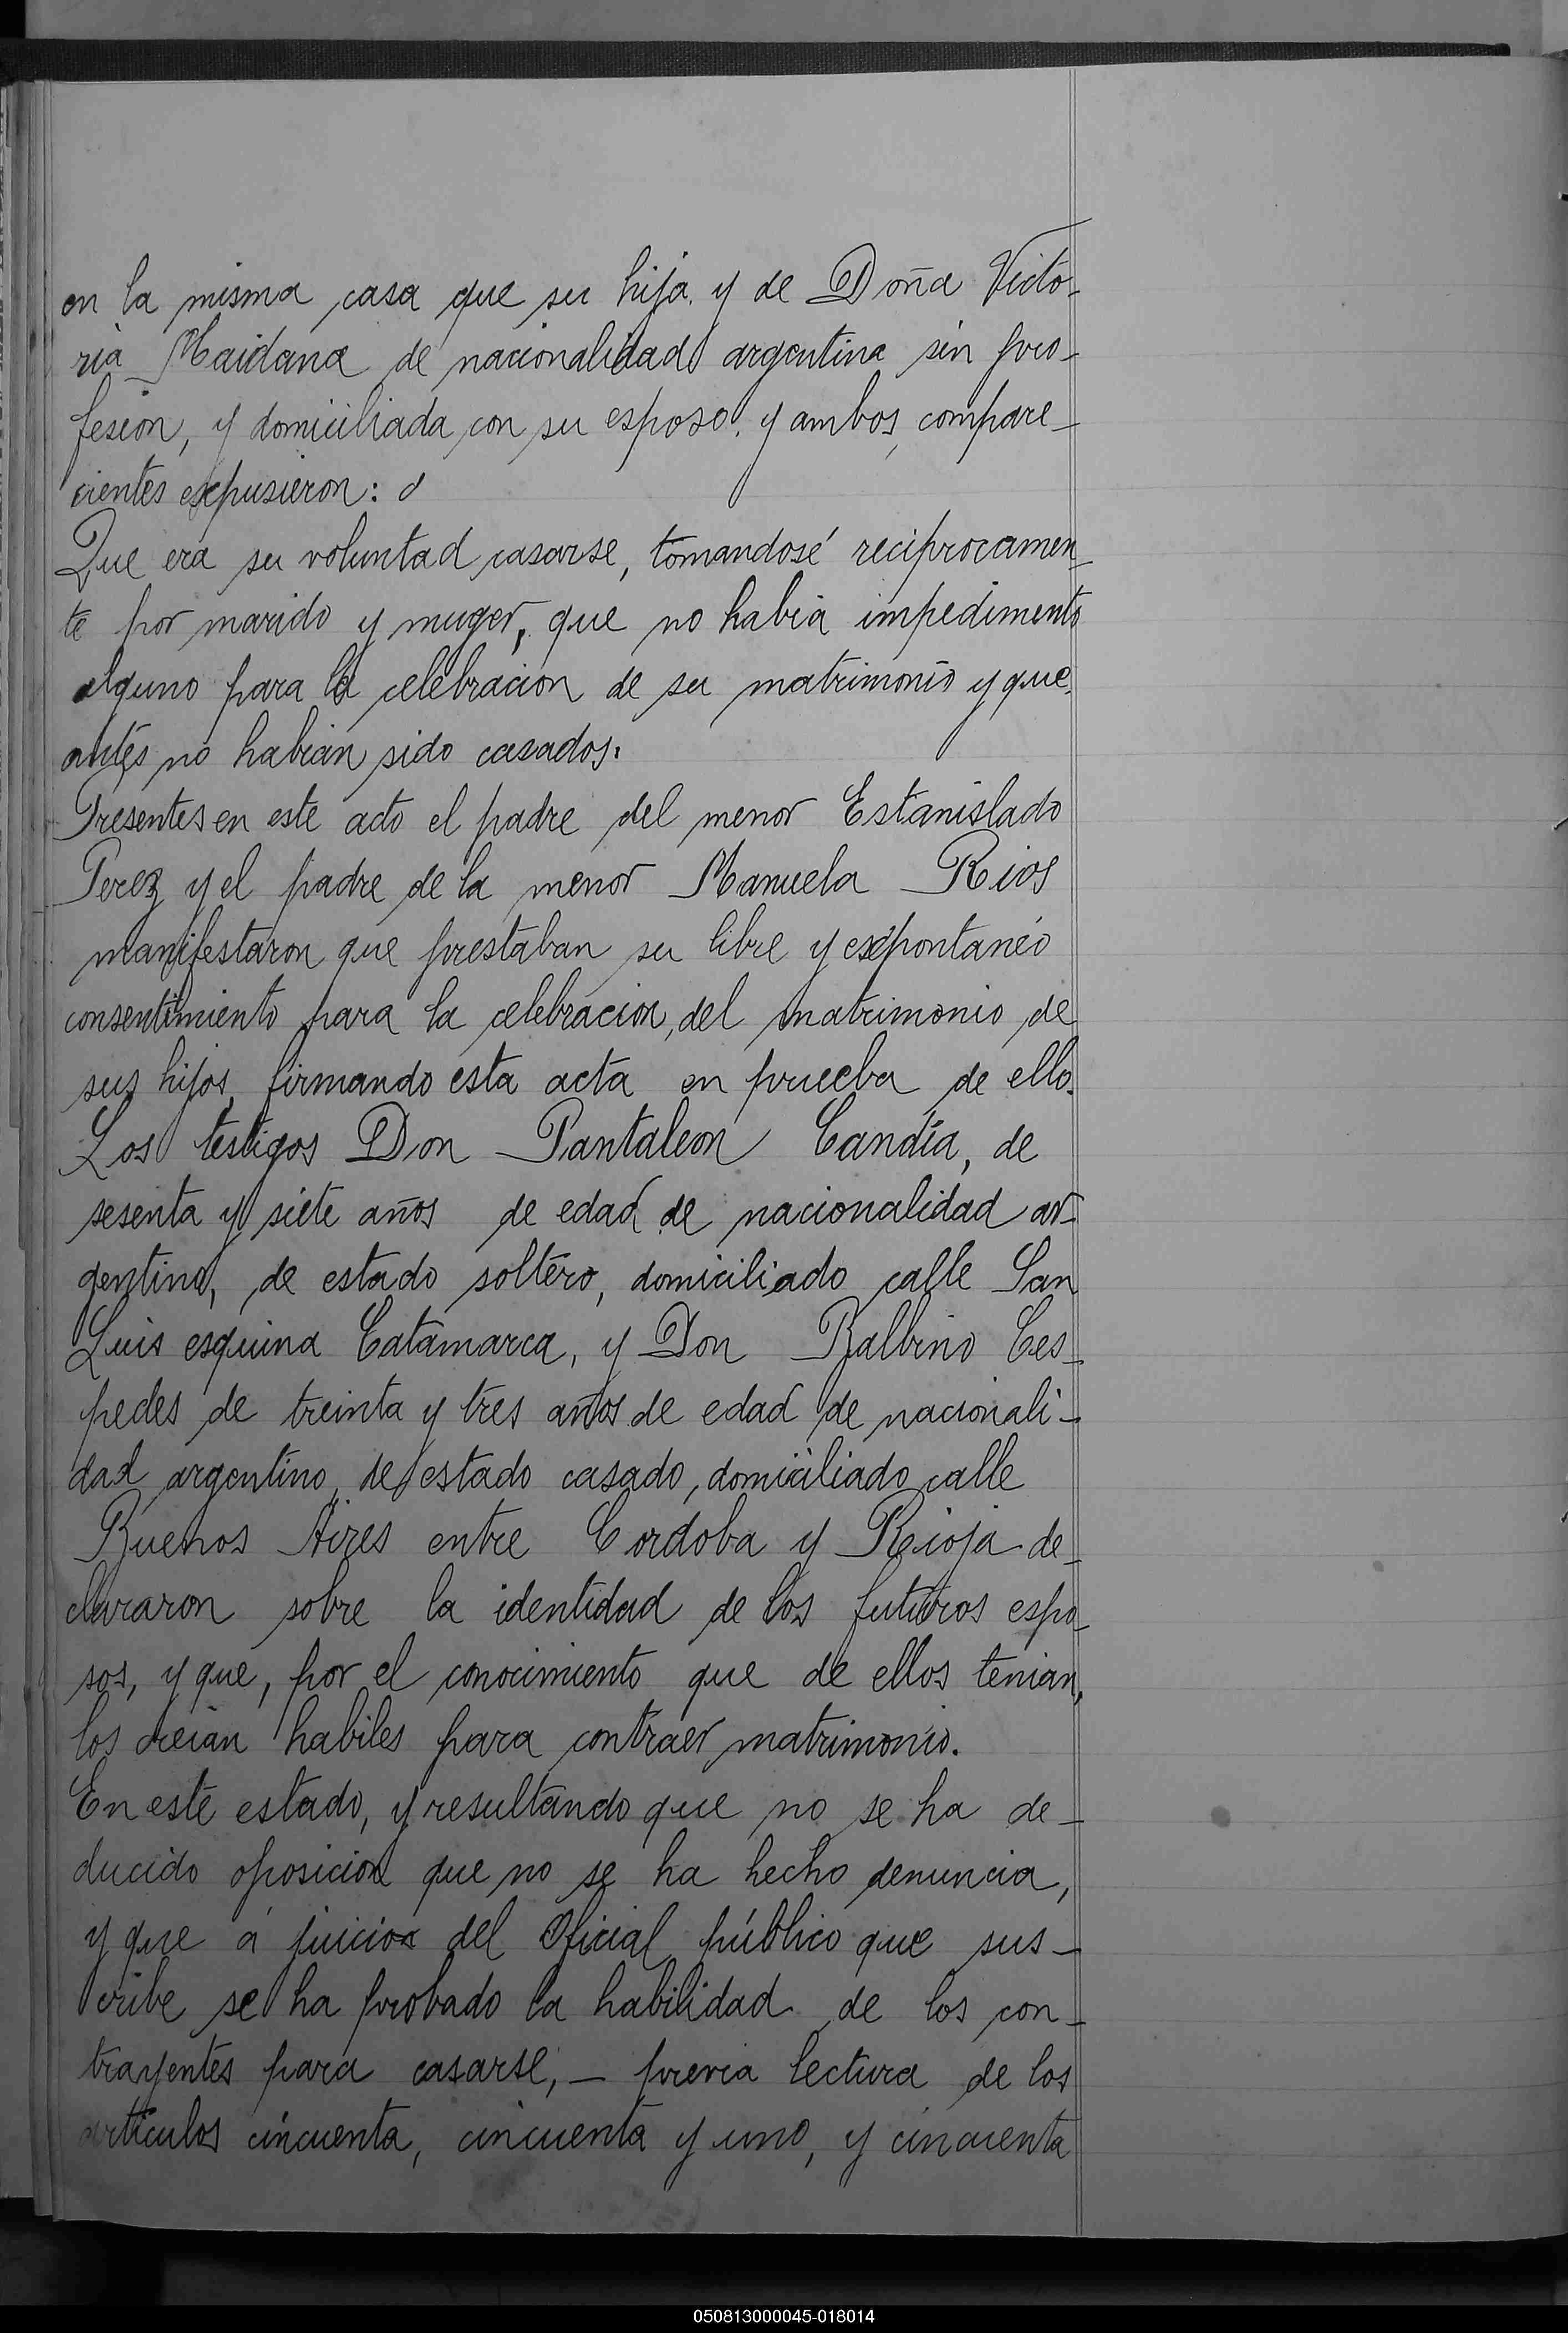 en la misma casa que su hija. y de Doña Victo-
ria Maidana de nacionalidad argentina sin pro-
fesion, y domiciliada con su esposo. y ambos compare-
cientes expusieron:
Que era su voluntad casarse, tomandosé reciprocamen-
te por marido y muger, que no habia impedimento
alguno para la celebracion de su matrimonio y que
antes no habian sido casados.
Presentes en este acto el padre del menor Estanislado
Perez y el padre de la menor Manuela Rios
manifestaron que prestaban su libre y expontaneo
consentimiento para la celebracion, del matrimonio de
sus hijos, firmando esta acta en prueba de ello.
Los testigos Don Pantaleon Candía, de
sesenta y siete años de edad de nacionalidad ar-
gentino, de estado soltero, domiciliado calle San
Luis esquina Catamarca, y Don Balbino Ces-
pedes de treinta y tres años de edad de nacionali-
dad argentino, de estado casado, domiciliado calle
Buenos Aires entre Cordoba y Rioja de-
clararon sobre la identidad de los futuros espo-
sos, y que, por el conocimiento que de ellos tenian,
los creian habiles para contraer matrimonio.
En este estado, y resultando que no se ha de-
ducido oposicion que no se ha hecho denuncia,
y que á juicio del Oficial público que sus-
cribe se ha probado la habilidad de los con-
trayentes para casarse, — previa lectura de los
articulos cincuenta, cincuenta y uno, y cincuenta
050813000045-018014